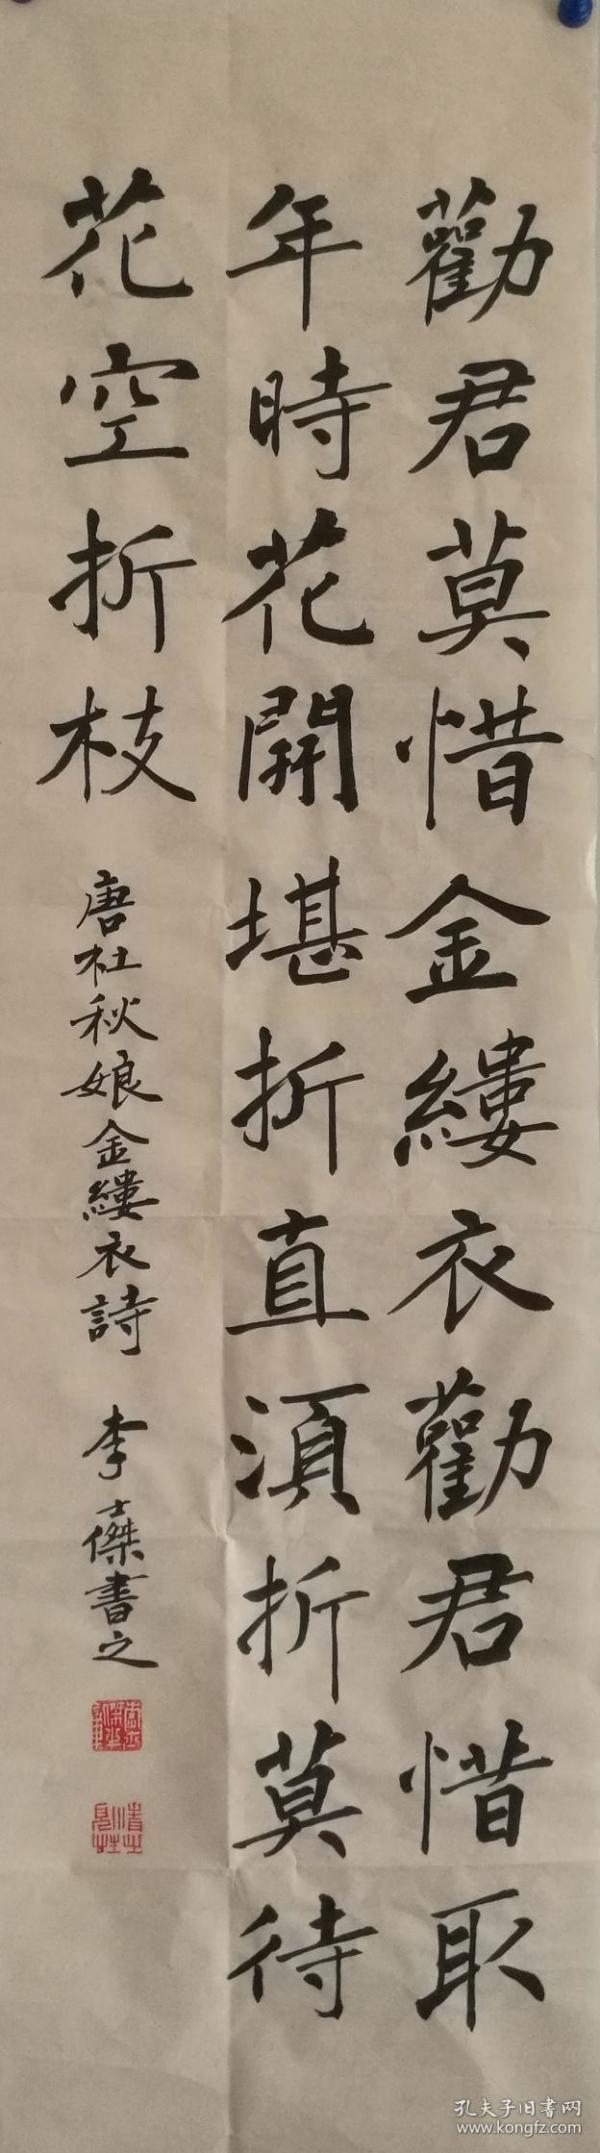 勸君莫惜金縷衣勸君惜取
年時花開堪折直須折莫待
花空折枝
唐杜秋娘金縷衣詩 李士傑書之
孔夫子旧书网
www.kongfz.com